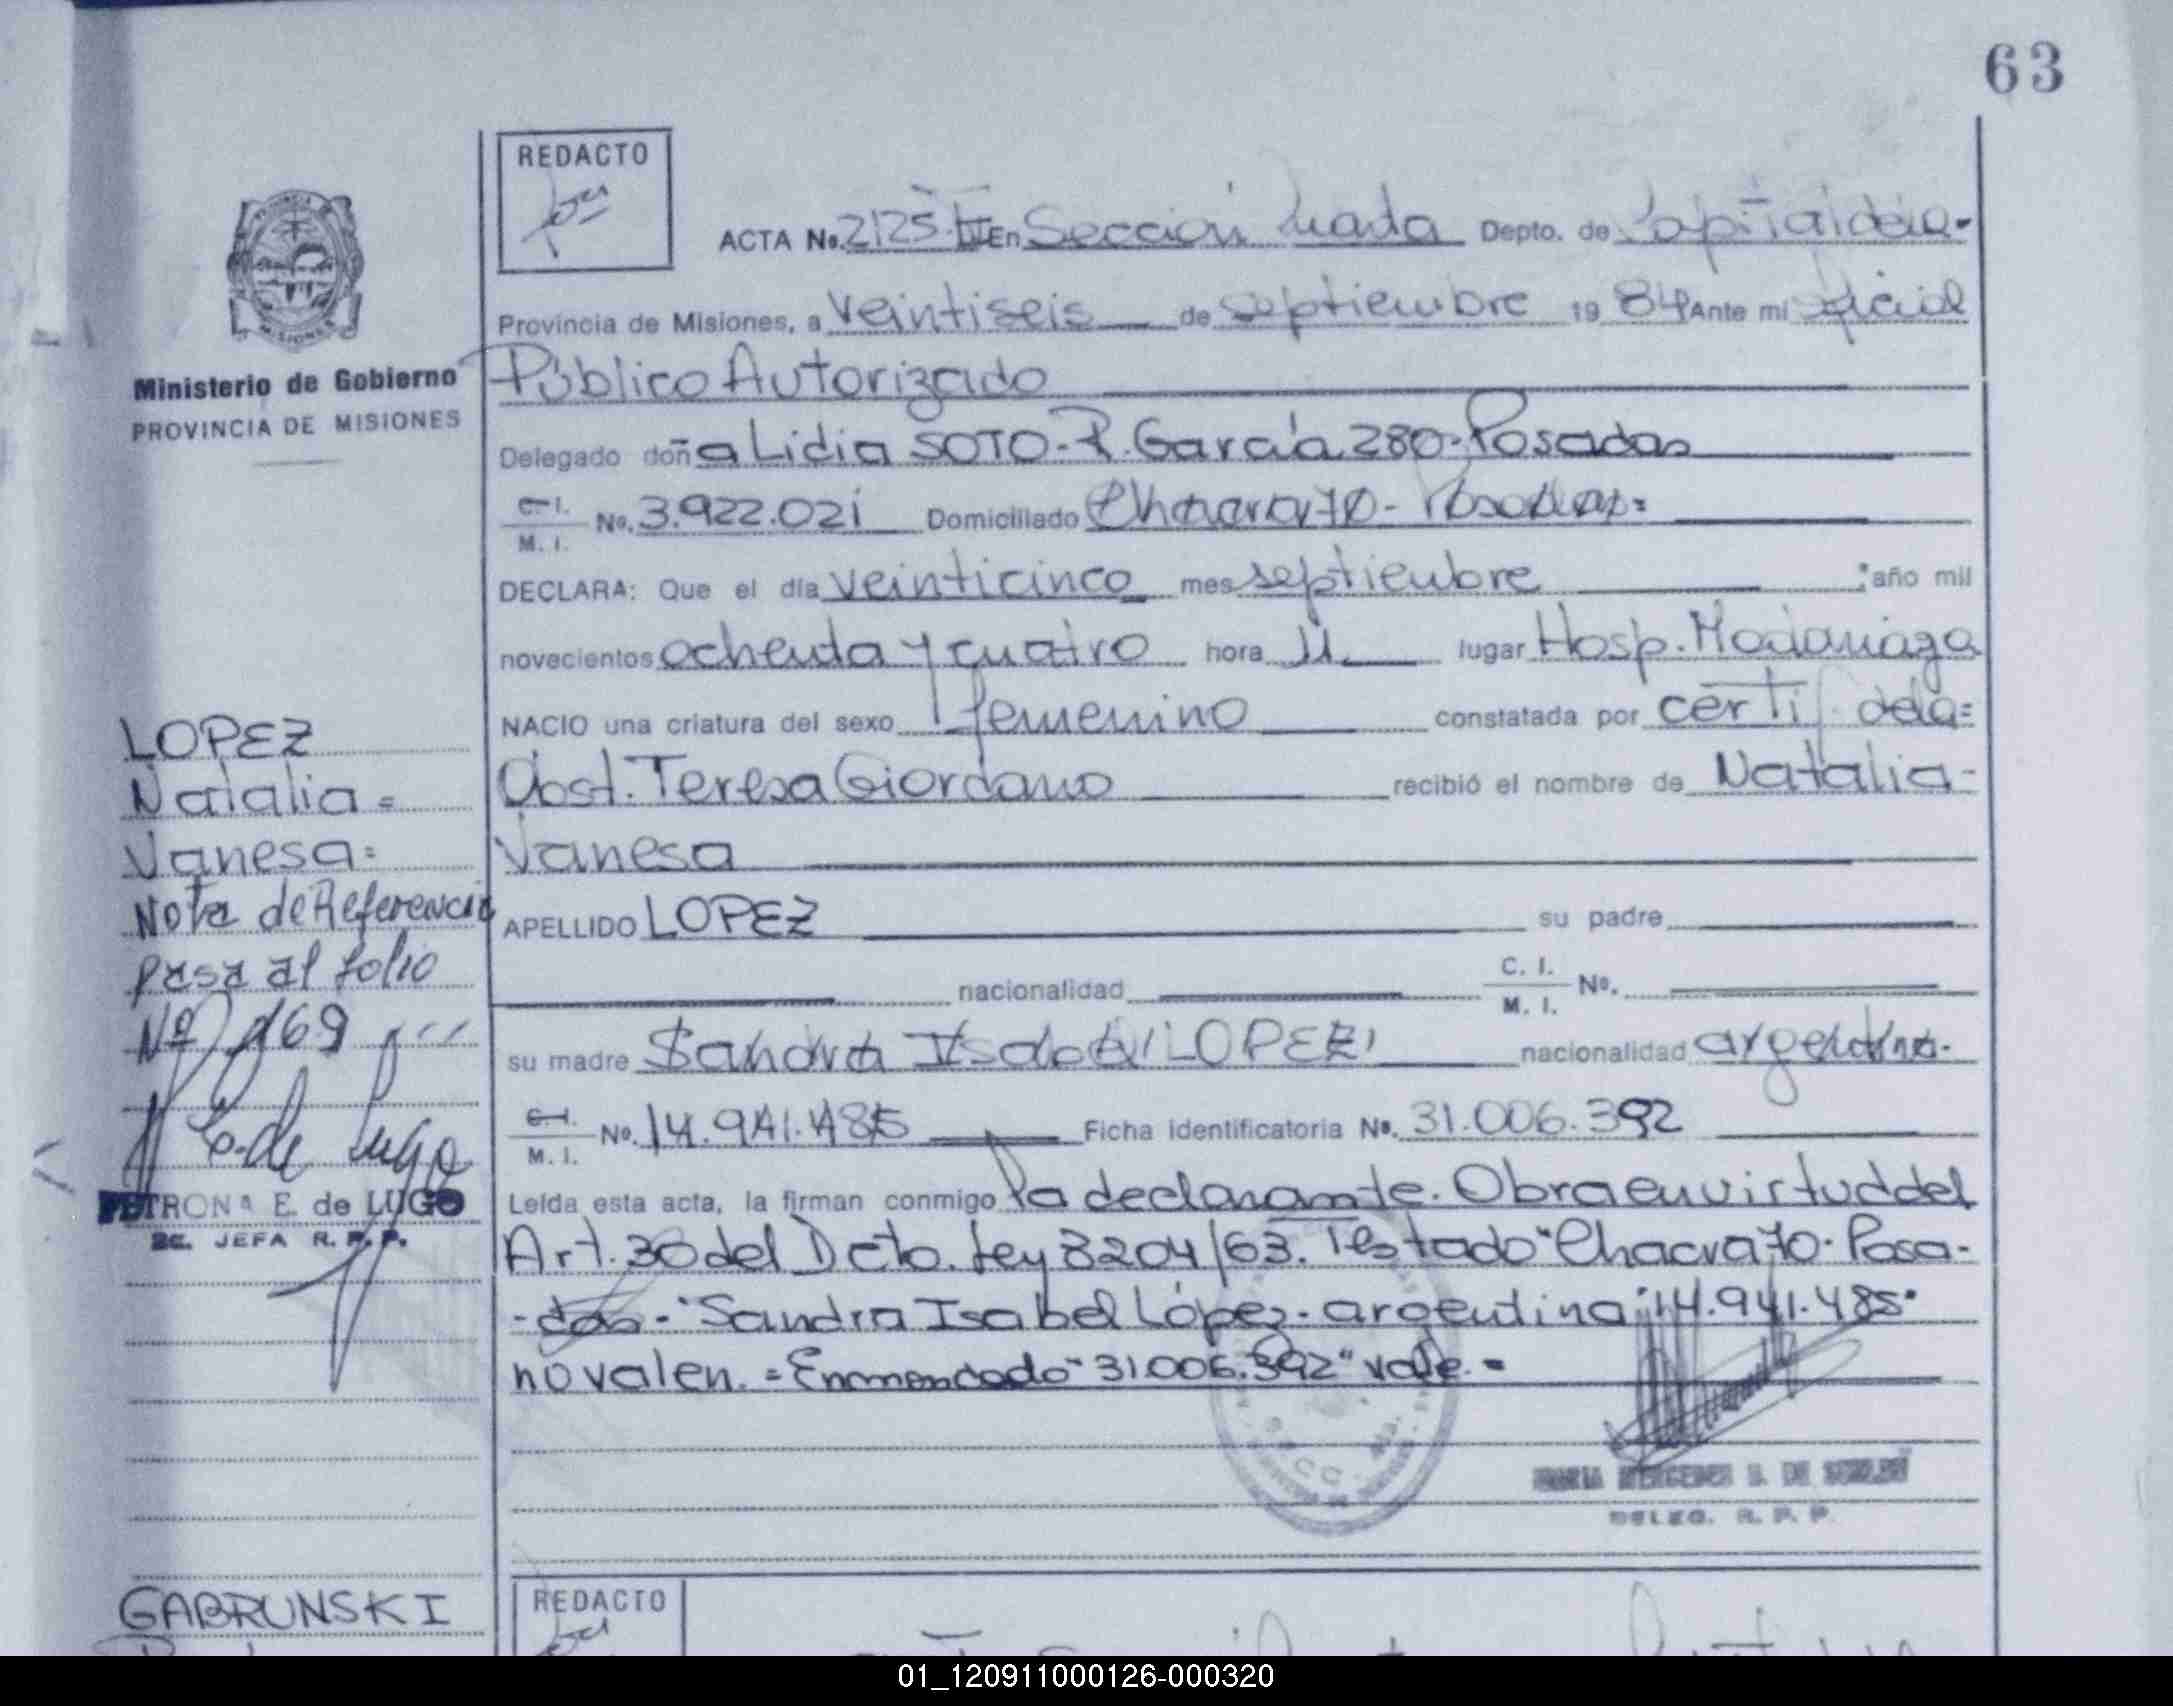 63
REDACTO
ACTA No. 2125 III En Sección Cuarta Depto. de Capital de la-
Provincia de Misiones, a veintiseis de septiembre 1984 Ante mi oficial
Ministerio de Gobierno
PROVINCIA DE MISIONES
Público Autorizado
Delegado doña Lidia SOTO-R. García 280-Posadas
C. I. / M. I. No. 3.922.021 Domiciliado Chacra 70- Posadas=
DECLARA: Que el día veinticinco mes septiembre año mil
novecientos ochenta y cuatro hora 11 lugar Hosp. Madariaga
NACIO una criatura del sexo femenino constatada por certif. de la=
Obst. Teresa Giordano recibió el nombre de Natalia-
Vanesa
APELLIDO LOPEZ su padre
nacionalidad C. I. / M. I. No.
su madre Sandra Isabel LOPEZ nacionalidad argentina-
C. I. / M. I. No. 14.941.485 Ficha identificatoria No. 31.006.392
Leída esta acta, la firman conmigo la declarante. Obra en virtud del
Art. 30 del Dcto. Ley 8204/63. Testado "Chacra 70- Posa-
-das- "Sandra Isabel López- argentina "14.941.485"
no valen.=Enmendado "31.006.392" vale.=
MARIA MERCEDES S. DE
DELEG. R. P. P.
LOPEZ
Natalia=
Vanesa=
Nota de Referencia
pasa al folio
Nº 169
E. de Lugo
PETRONA E. de LUGO
JEFA R. P. P.
GABRUNSKI
REDACTO
01_120911000126-000320